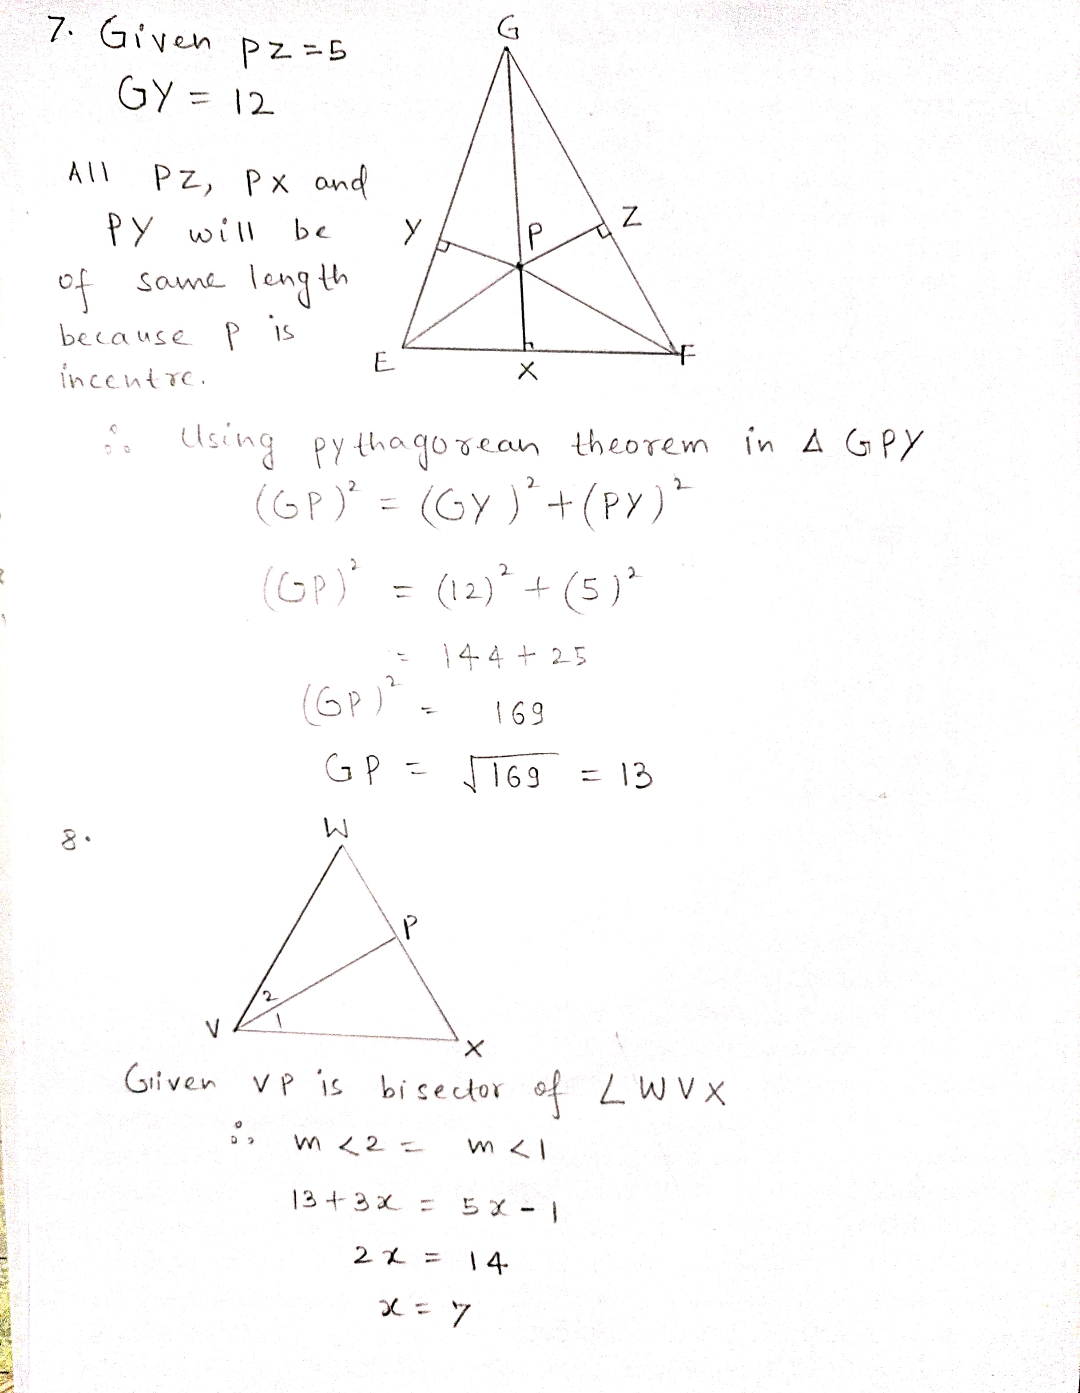 7. Given PZ = 5
GY = 12
All PZ, PX and
PY will be
of same length
because P is
incentre.
G
Y
Z
P
E
X
F
∴ Using pythagorean theorem in Δ GPY
(GP)² = (GY)² + (PY)²
(GP)² = (12)² + (5)²
= 144 + 25
(GP)² = 169
GP = √169 = 13
8.
W
P
2
1
V
X
Given VP is bisector of ∠WVX
∴ m<2 = m<1
13+3x = 5x-1
2x = 14
x = 7